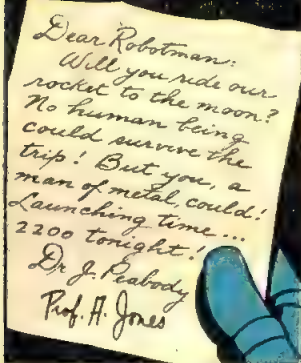 Dear Robotman:
Will you ride our
rocket to the moon?
No human being
could survive the
trip! But you, a
man of metal, could!
Launching time...
2200 tonight!
Dr. J. Peabody
Prof. A. Jones